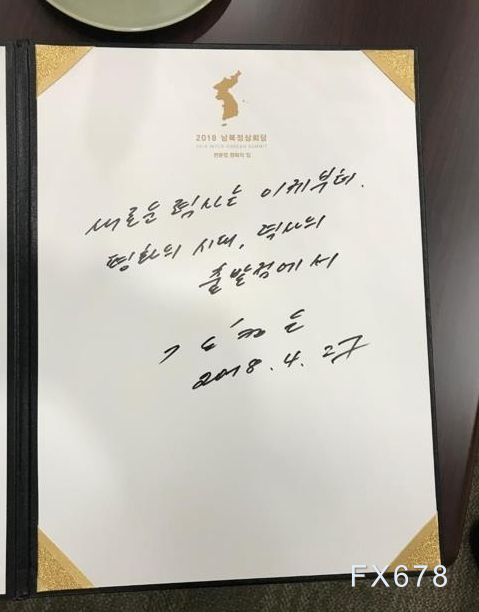 2018 남북정상회담
2018 INTER-KOREAN SUMMIT
판문점 평화의 집
새로운 력사는 이제부터.
평화의 시대, 력사의
출발점에서
김정은
2018. 4. 27
FX678